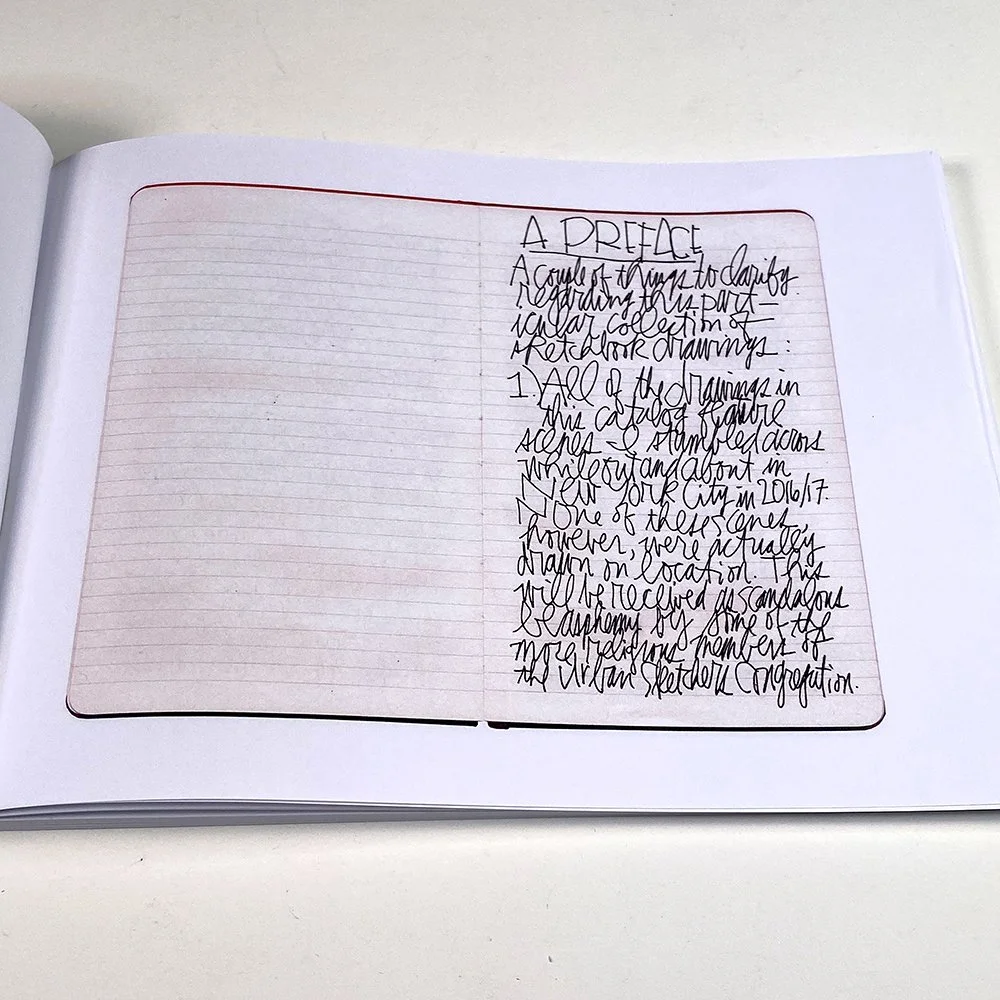 A PREFACE
A couple of things to clarify
regarding this part-
icular collection of
sketchbook drawings:
1) All of the drawings in
this catalog feature
scenes I stumbled across
while out and about in
New York City in 2016/17.
None of these scenes,
however, were actually
drawn on location. This
will be received as scandalous
blasphemy by some of the
more religious members of
the Urban Sketchers Congregation.